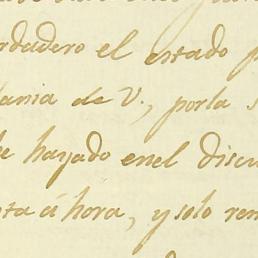 rdadero el estado p
lania de V., porla s
e hayado enel discu
ta áhora, y solo ren